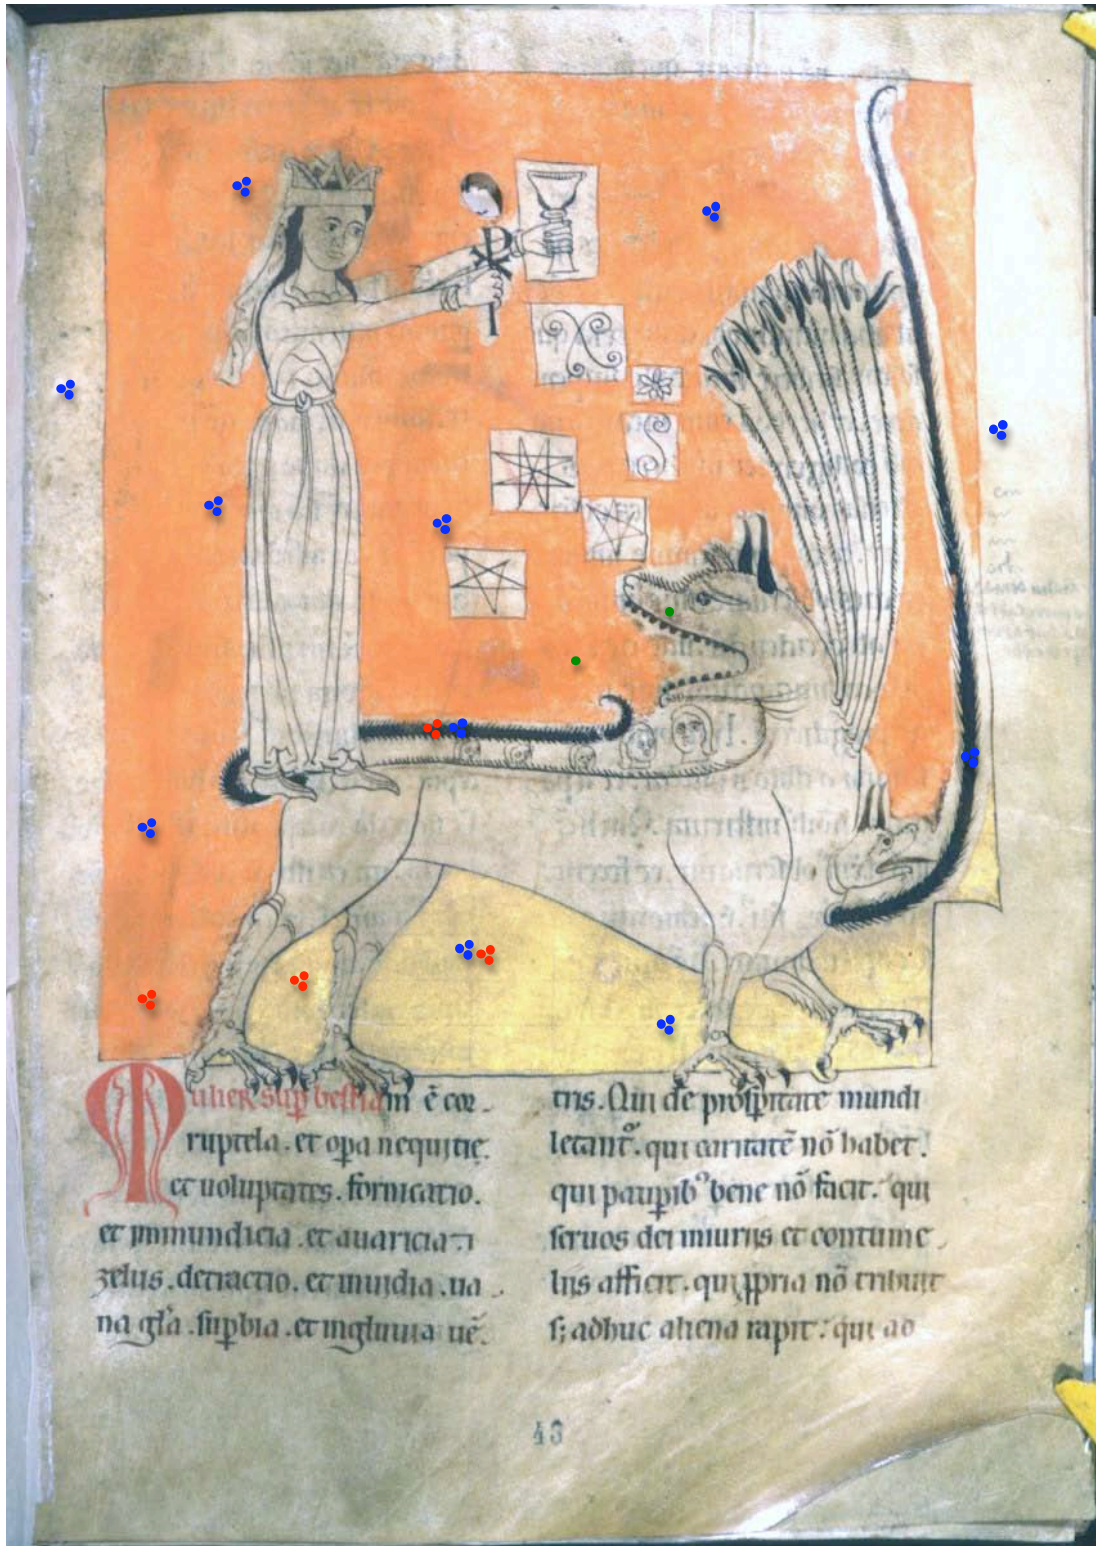 Mulier sup bestiam ē cor-
ruptela. et opa nequitie.
et uoluptates. fornicatio.
et inmundicia. et auaricia. ⁊
zelus. detractio. et inuidia. ua-
na gła. supbia. et ingluuia uē.
tris. Qui de prospitate mundi
letant᷑. qui caritatē nō habet.
qui paupib᷒ bene nō facit. qui
seruos dei iniuriis et contume-
liis afficit. qui ꝓpria nō tribuit
s; adhuc aliena rapit: qui ad
43